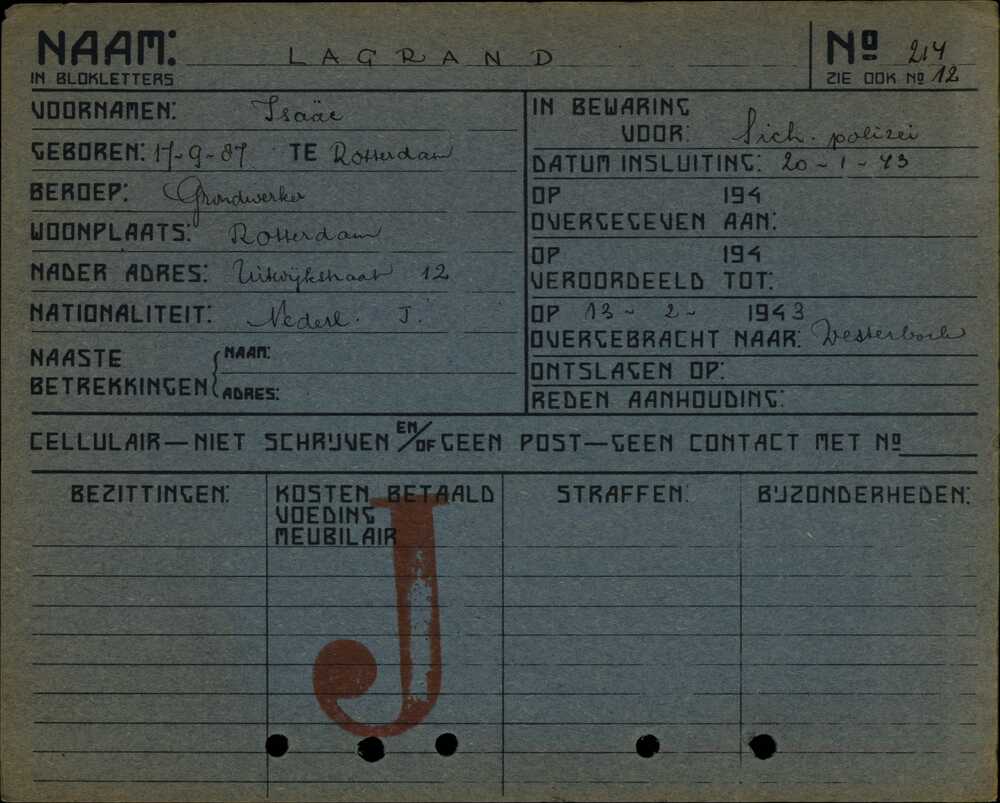 NAAM: LAGRAND
IN BLOKLETTERS
No 214
ZIE OOK No 12
VOORNAMEN: Isaäc
GEBOREN: 17-9-87 TE Rotterdam
BEROEP: Grondwerker
WOONPLAATS: Rotterdam
NADER ADRES: Uitwijkstraat 12
NATIONALITEIT: Nederl. J.
NAASTE BETREKKINGEN
NAAM:
ADRES:
IN BEWARING
VOOR: Sich. polizei
DATUM INSLUITING: 20-1-43
OP 194
OVERGEGEVEN AAN:
OP 194
VEROORDEELD TOT:
OP 13-2-1943
OVERGEBRACHT NAAR: Westerbork
ONTSLAGEN OP:
REDEN AANHOUDING:
CELLULAIR—NIET SCHRIJVEN EN/OF GEEN POST—GEEN CONTACT MET No
BEZITTINGEN:
KOSTEN BETAALD
VOEDING
MEUBILAIR
STRAFFEN:
BIJZONDERHEDEN:
J